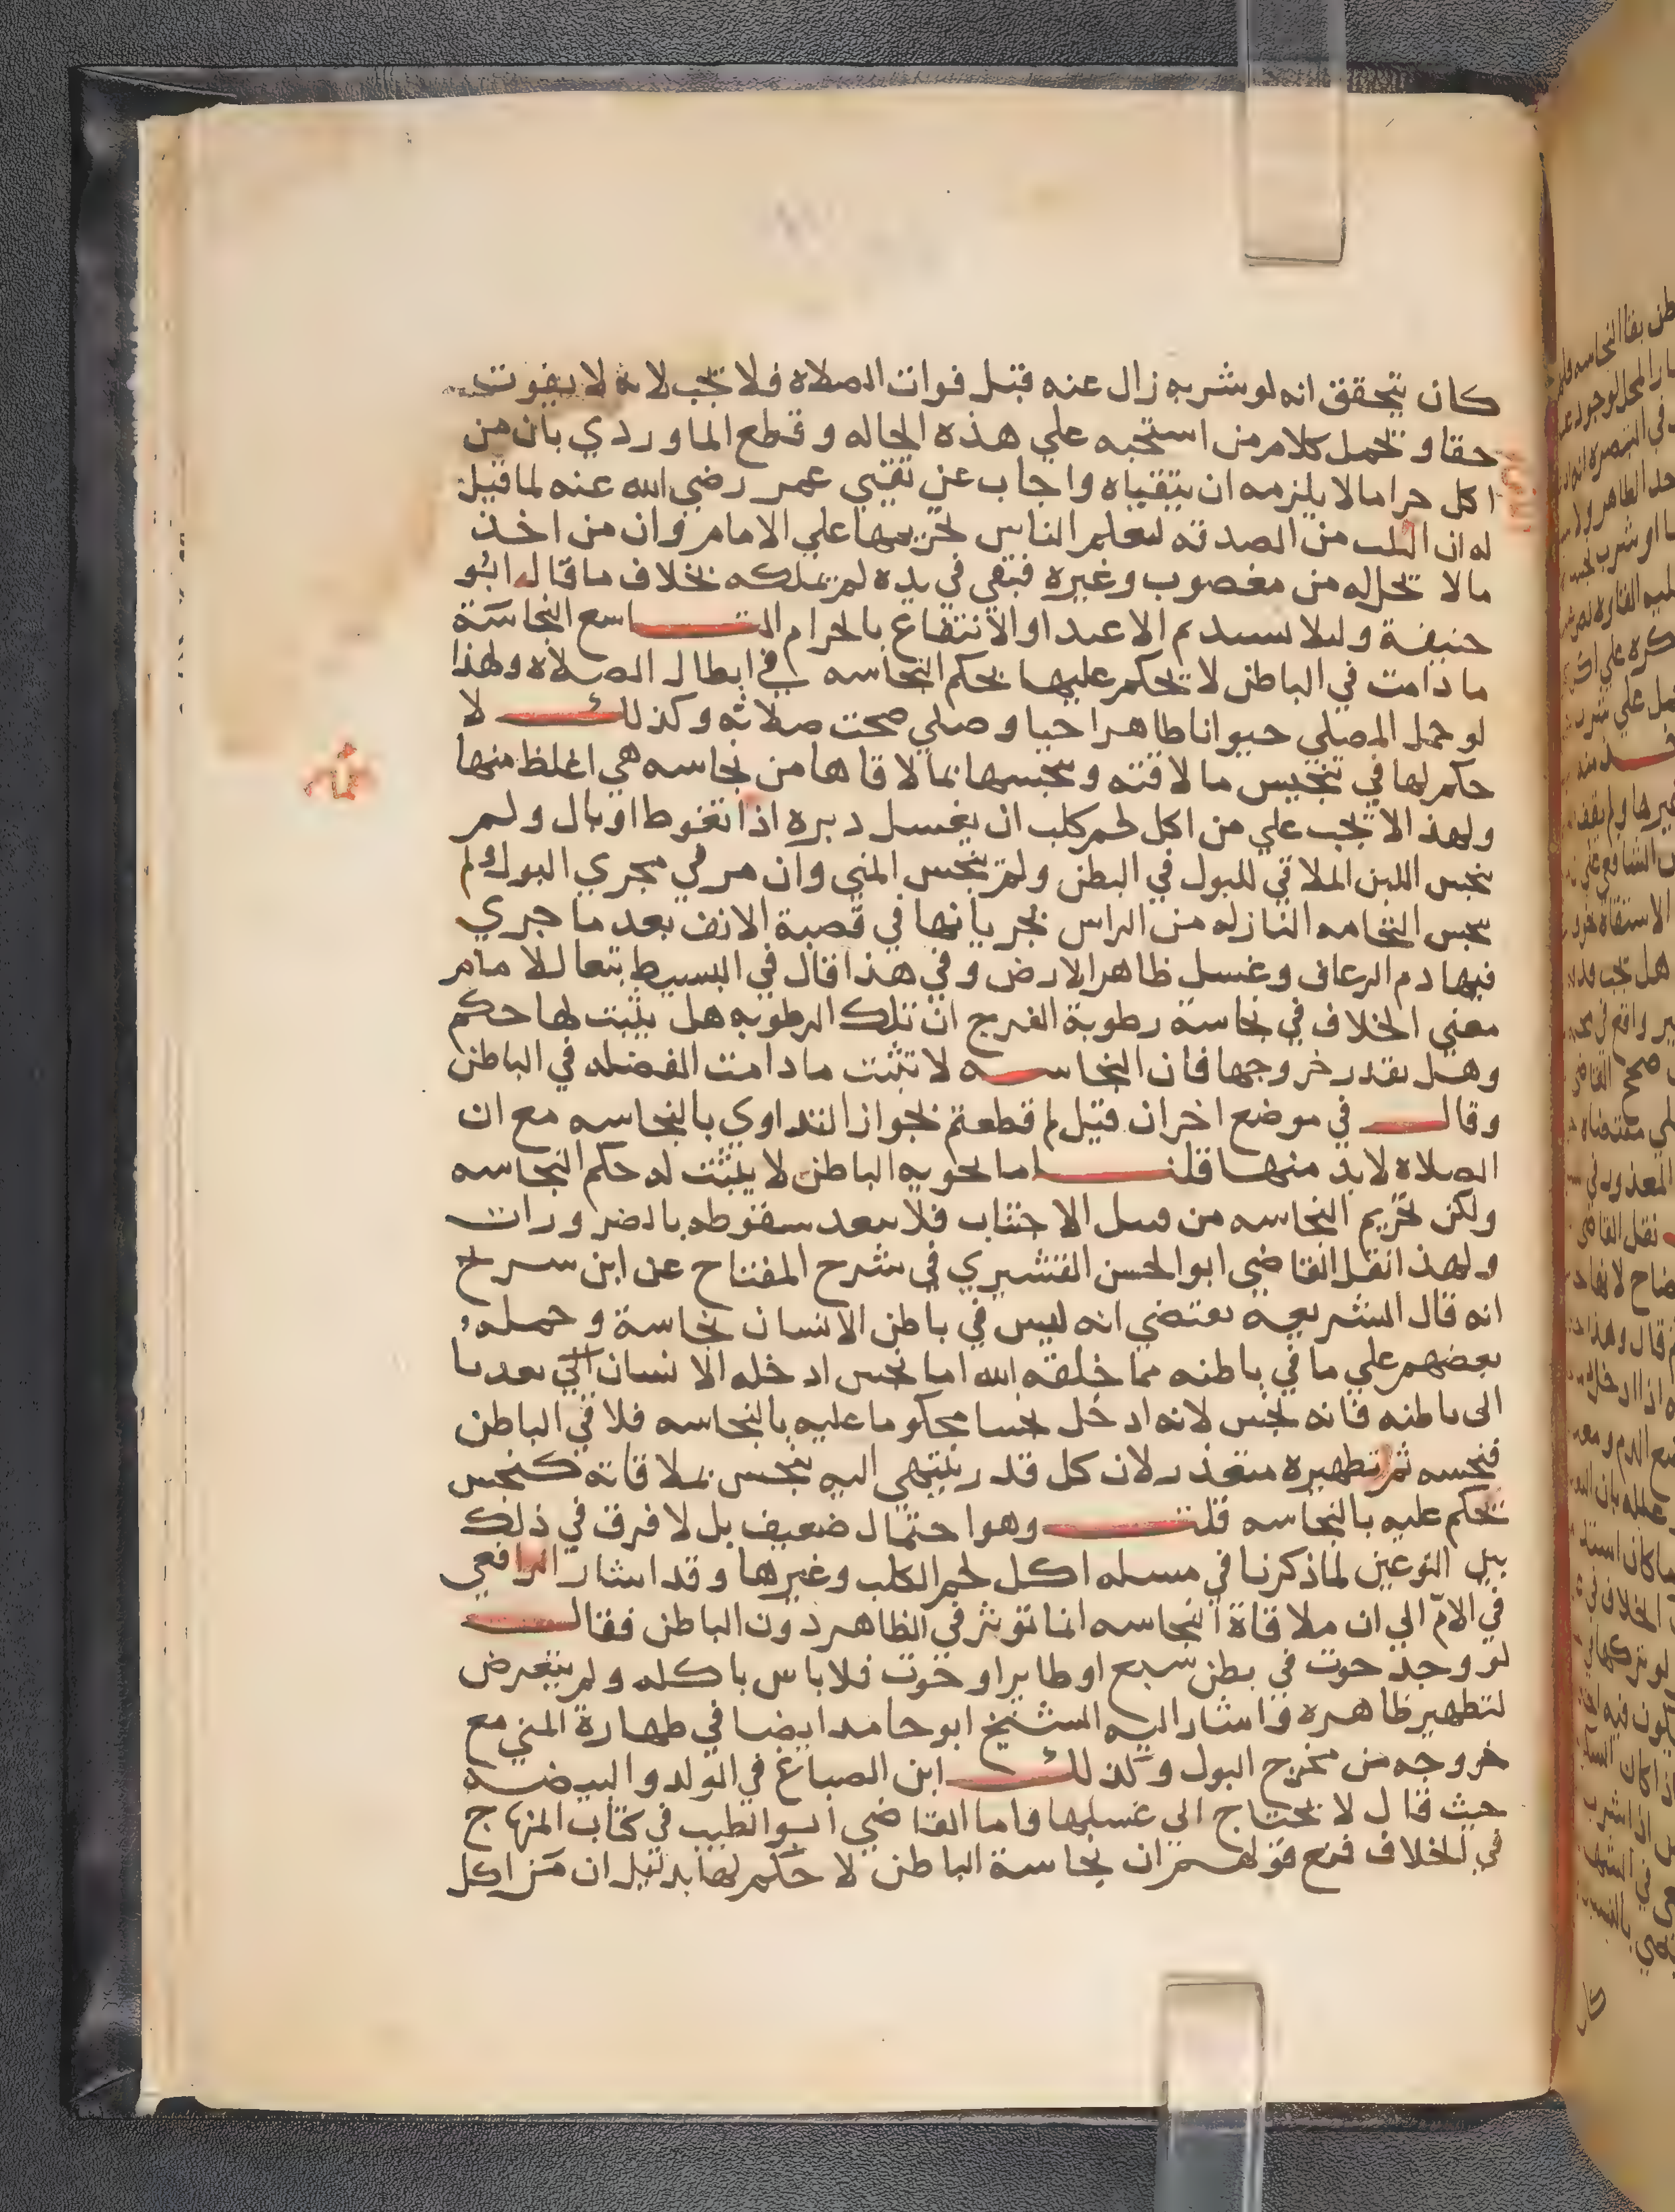 كان يتحقق انه لو شربه زال عنه قبل فوات الصلاة فلا تجب لانه لا يفوت
حقا و تحمل كلام من استحبه علي هذه الحاله و قطع الماوردي بان من
اكل حراما لا يلزمه ان يتقياه واجاب عن تقيي عمر رضي الله عنه لما قيل
له ان اللبن من الصدقه ليعلم الناس تحريمها علي الامام وان من اخذ
مالا تحل له من مغصوب وغيره فبقي في يده لم يملكه بخلاف ما قال ابو
حنيفة وليلا يستديم الاعتداء والانتفاع بالحرام التاسع النجاسة
ما دامت في الباطن لا يحكم عليها بحكم النجاسه في ابطال الصلاة ولهذا
لو حمل المصلي حيوانا طاهرا حيا وصلي صحت صلاته وكذلك لا
حكم لها في تنجيس ما لاقته وتنجسها بما لاقاها من نجاسه هي اغلظ منها
ولهذا لا تجب علي من اكل لحم كلب ان يغسل دبره اذا تغوط او بال ولم
ينجس اللبن الملاقي للبول في البطن ولم ينجس المني وان مر في مجري البول ولم
ينجس النخامه النازله من الراس بجريانها في قصبة الانف بعد ما جري
فيها دم الرعاف وغسل ظاهر الارض وفي هذا قال في البسيط تبعا للامام
معني الخلاف في نجاسة رطوبة الفرج ان تلك الرطوبه هل يثبت لها حكم
وهل يقدر خروجها فان النجاسه لا تثبت ما دامت الفضله في الباطن
وقال في موضع اخر ان قيل لم قطعتم بجواز التداوي بالنجاسه مع ان
الصلاة لا بد منها قلنا ما يحويه الباطن لا يثبت له حكم النجاسه
ولكن تحريم النجاسه من قبيل الاجتناب فلا يبعد سقوطه بالضرورات
ولهذا نقل القاضي ابو الحسن القشيري في شرح المفتاح عن ابن سريج
انه قال الشريعه تقتضي انه ليس في باطن الانسان نجاسة وحمله
بعضهم علي ما في باطنه مما خلقه الله اما نجس ادخله الانسان
الى باطنه فانه نجس لانه ادخل نجسا محكوما عليه بالنجاسه فلاقي الباطن
فنجسه ثم تطهيره متعذر لان كل قدر ينتهي اليه ينجس بملاقاته كنجس
يحكم عليه بالنجاسه قلت وهو احتمال ضعيف بل لا فرق في ذلك
بين النوعين لما ذكرنا في مسله اكل لحم الكلب وغيرها وقد اشار الرافعي
في الام الي ان ملاقاة النجاسه انما تؤثر في الظاهر دون الباطن فقال
لو وجد حوت في بطن سبع او طاير او حوت فلا باس باكله ولم يتعرض
لتطهير ظاهره واشار اليه الشيخ ابو حامد ايضا في طهارة المني مع
خروجه من مخرج البول وكذلك ابن الصباغ في الولد والبيضه
حيث قال لا يحتاج الي غسلها واما القاضي ابو الطيب في كتاب المنهاج
في الخلاف فمنع قولهم ان نجاسة الباطن لا حكم لها بدليل ان من اكل